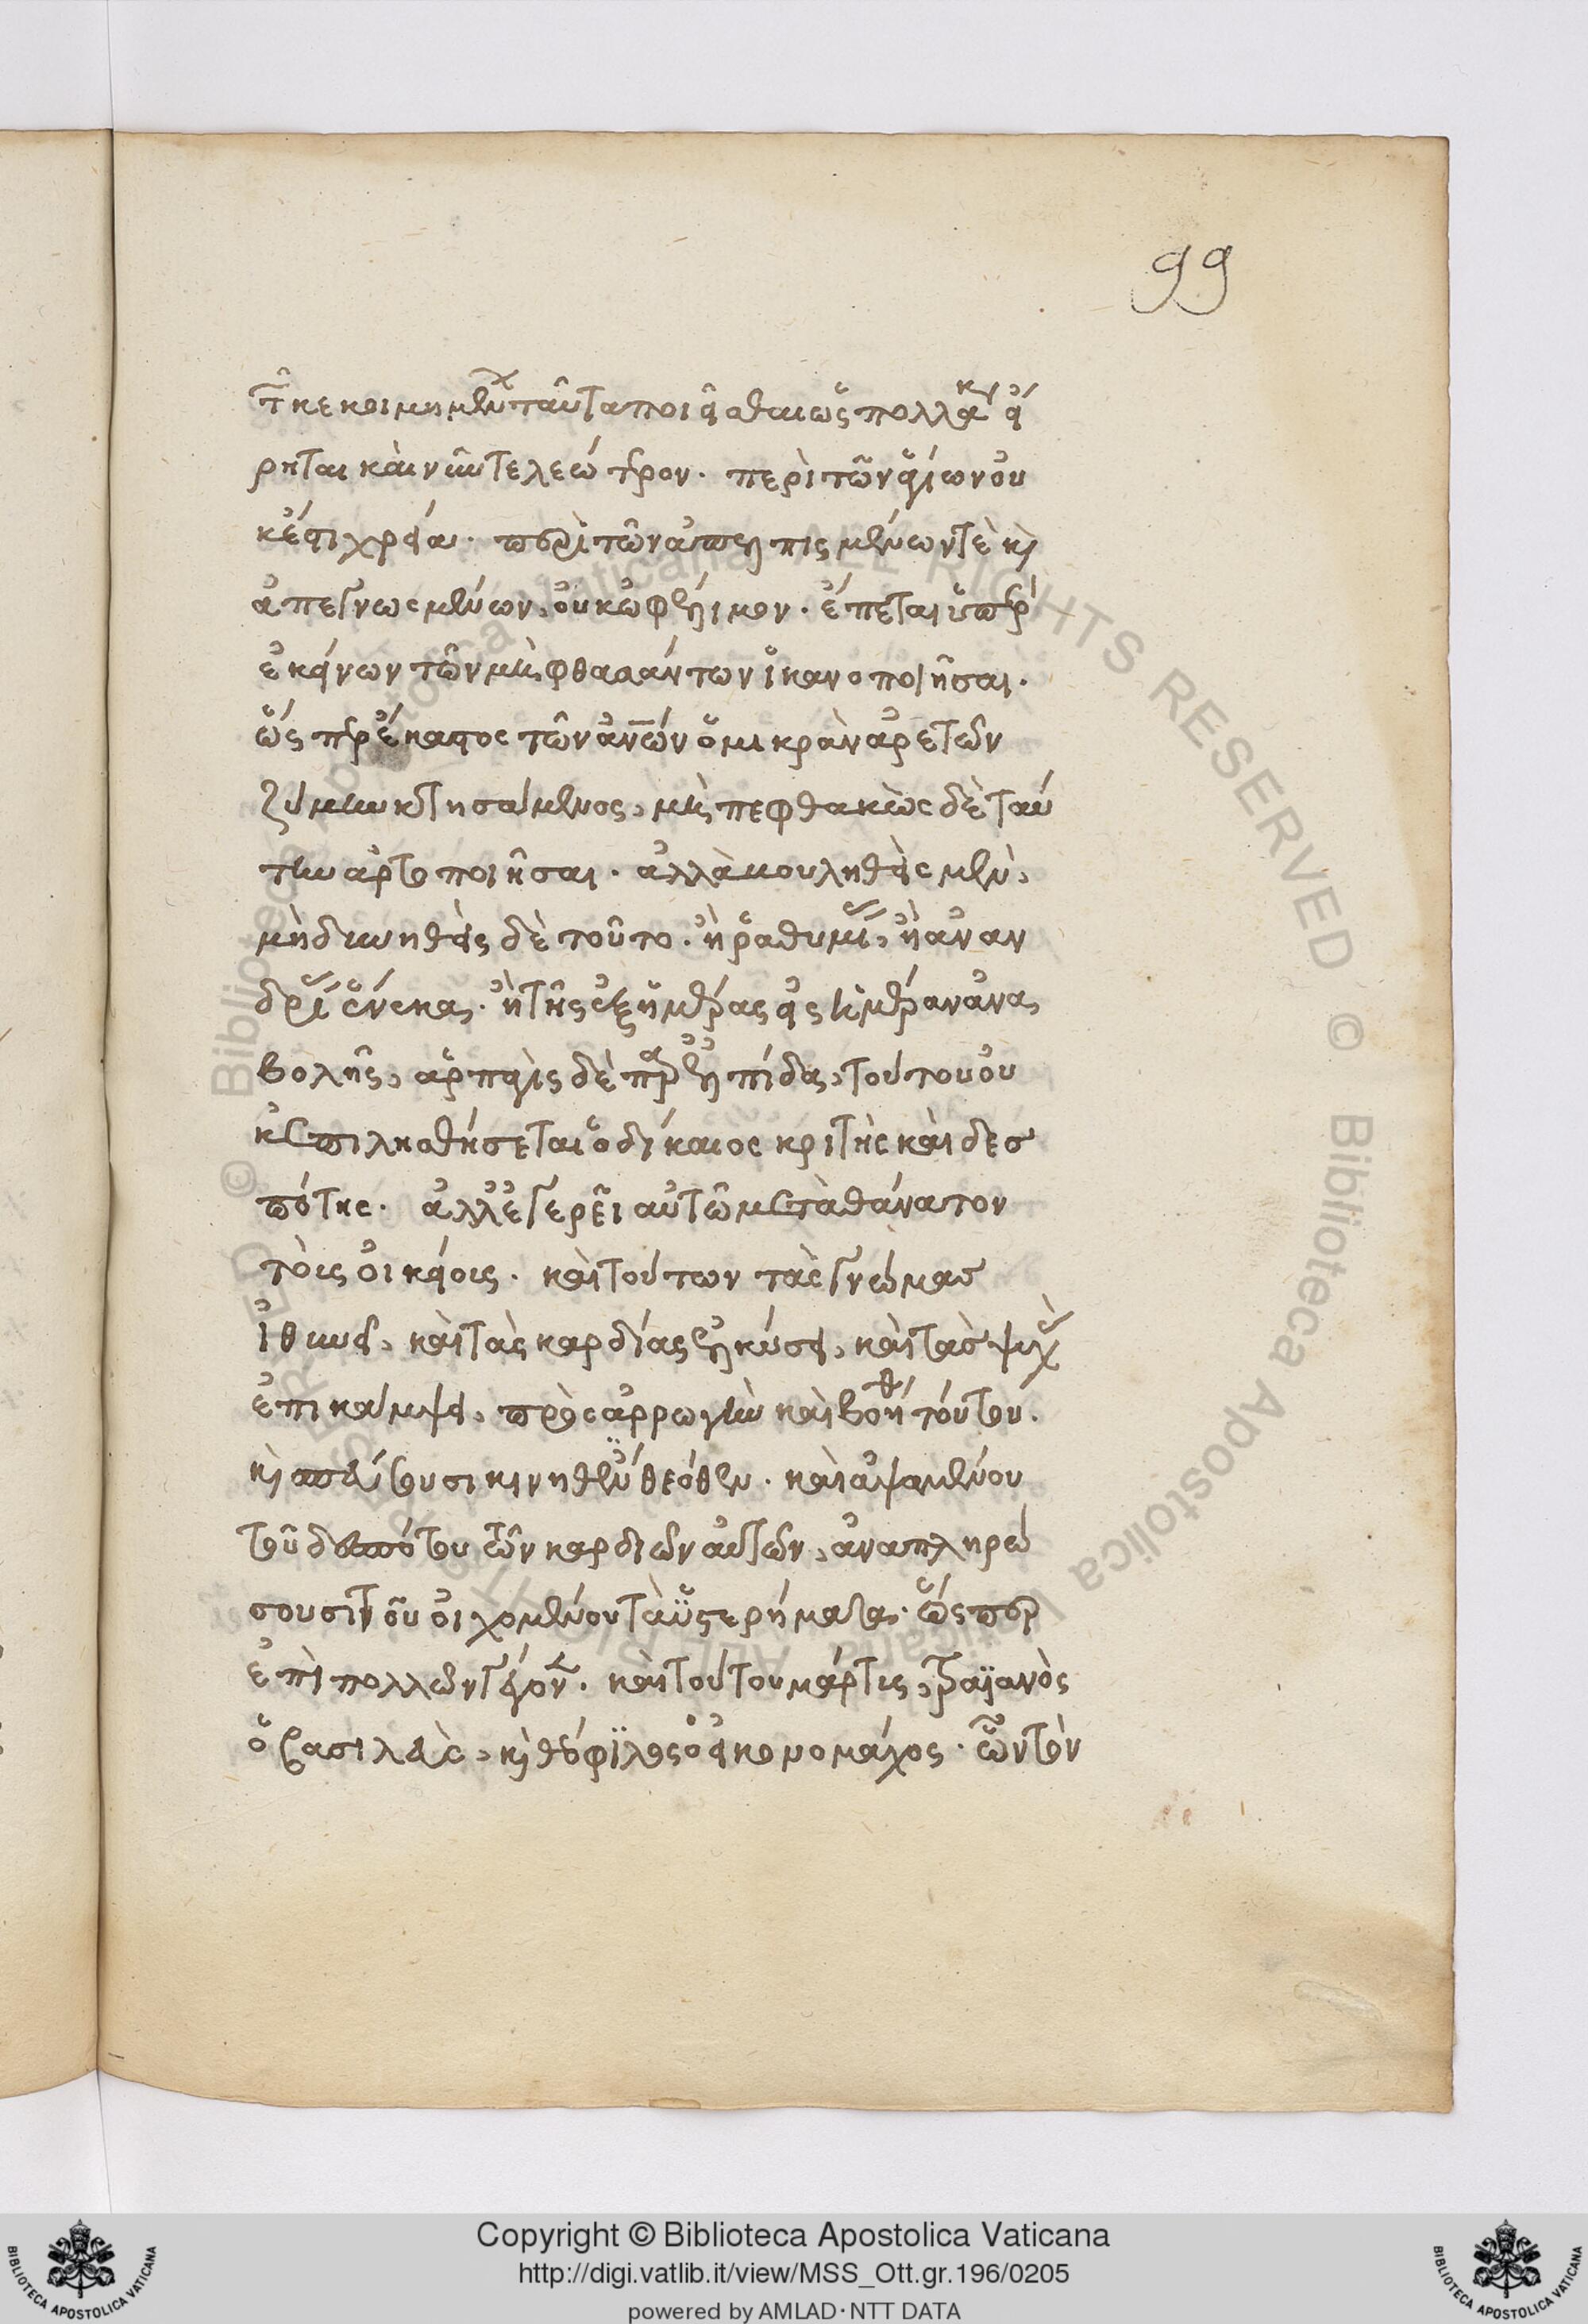 99
τῶν κεκοιμημένων ταῦτα ποιεῖσθαι ὡς πολλάκις εἴ
ρηται καὶ νῦν τελεώτερον. περὶ τῶν ἁγίων οὐ
κ ἔστι χρεία. περὶ τῶν ἀπηλπισμένων τὲ καὶ
ἀπεγνωσμένων, οὐκ ὠφέλιμον. ἕπεται ὑπὲρ
ἐκείνων τῶν μὴ φθασάντων ἱκανοποιῆσαι.
ὥσπερ ἕκαστος τῶν ἀνων ὁ μικρὰν ἀρετῶν
ζύμην κτησάμενος, μὴ πεφθακὼς δὲ ταύ
την ἄρτον ποιῆσαι. ἀλλὰ βουληθεὶς μὲν,
μὴ δυνηθεὶς δὲ τοῦτο. ἢ ῥαθυμίας, ἢ ἀναν
δρίας ἕνεκα. ἢ τῆς ἐξ ἡμέρας εἰς ἡμέραν ἀνα
βολῆς, ἁρπαγεὶς δὲ παρ' ἐλπίδα, τούτου οὐ
κ ἐπιλησθήσεται ὁ δίκαιος κριτὴς καὶ δεσ
πότης. ἀλλ' ἐγερεῖ αὐτῶ μετὰ θάνατον
τοὺς οἰκείους. καὶ τούτων τὰς γνώμας
ἰθυνεῖ, καὶ τὰς καρδίας ἑλκύσει, καὶ τὰς ψυχὰς
ἐπικάμψει, πρὸς ἀρρωγὴν καὶ βοήθειαν τούτου.
καὶ σπεύσουσι κινηθέντες θεόθεν. καὶ ἁψαμένου
τοῦ δεσπότου τῶν καρδιῶν αὐτῶν, ἀναπληρώ
σουσι τοῦ οἰχομένου τὰ ὑστερήματα. ὥσπερ
ἐπὶ πολλῶν γέγονεν. καὶ τούτου μάρτυς, Τραϊανὸς
ὁ βασιλεὺς, καὶ θεόφιλος ὁ εἰκονομάχος. ὧν τὸν
© Biblioteca Apostolica Vaticana ALL RIGHTS RESERVED © Biblioteca Apostolica Vaticana ALL RIGHTS RESERVED
Copyright © Biblioteca Apostolica Vaticana
http://digi.vatlib.it/view/MSS_Ott.gr.196/0205
powered by AMLAD·NTT DATA
BIBLIOTECA APOSTOLICA VATICANA
BIBLIOTECA APOSTOLICA VATICANA